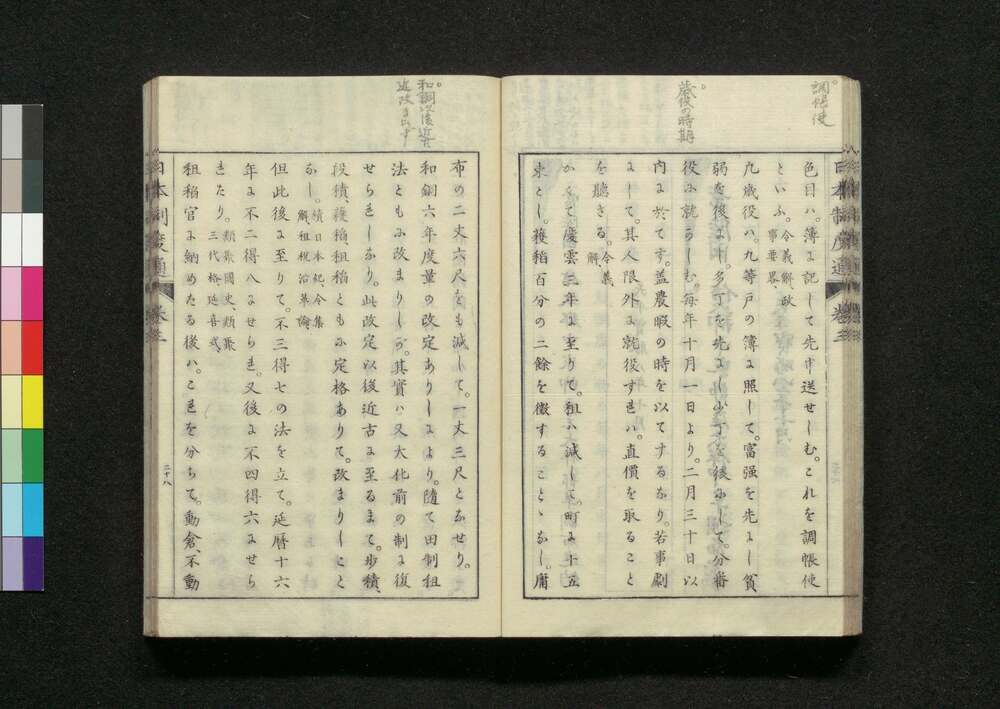 調帳使
歳役の時期
色目ハ。簿に記して先申送せしむ。これを調帳使
といふ。令義解、政
事要畧、
凡歳役ハ。九等戸の簿に照して。富強を先にし貧
弱を後にす。多丁を先にし少丁を後にして。分番
役に就らしむ。毎年十月一日より。二月三十日以
内に於てす。蓋農暇の時を以てするなり。若事劇
にして。其人限外に就役すれハ。直價を取ること
を聴さる。令義
解、
かくて慶雲三年に至りて。租ハ減して。町に十五
束とし。穫稻百分の二餘を徴することゝなし。庸
和銅以後近古
迄改まらず
布の二丈六尺をも減して。一丈三尺となせり。
和銅六年度量の改定ありしにより。隨て田制租
法ともに改まりしが。其實ハ又大化前の制に復
せられしなり。此改定以後近古に至るまて。歩積、
段積、穫稻租稻ともに定格ありて。改まりしこと
なし。續日本紀、令集
解、租税沿革論、
但此後に至りて。不三得七の法を立て。延暦十六
年に不二得八にせられ。又後に不四得六にせら
れたり。類聚國史、類聚
三代格、延喜式、
租稻官に納めたる後ハ。これを分ちて。動倉、不動
日本制度通
卷三
二十八
日本制度通
卷三